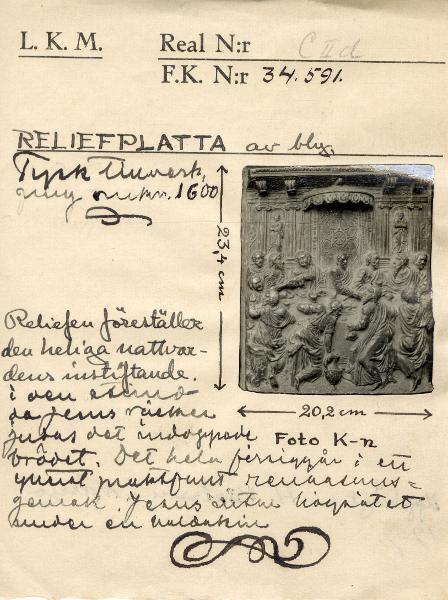 L. K. M. Real N:r C II d
F. K. N:r 34.591.
RELIEFPLATTA av bly,
Tysk
omkr. 1600
23,4 cm
20,2 cm
Foto K-n
Reliefen föreställer
den heliga nattvar-
dens instiftande.
i den stund
då Jesus räcker
Judas det indoppade
brödet. Det hela försiggår i ett
renässans-
gemak. Jesus sitter högsätet
under en baldakin